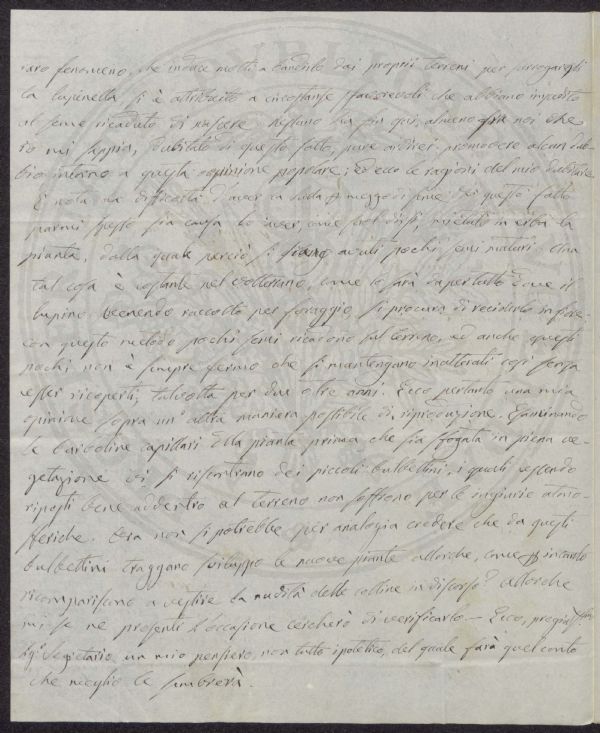 raro fenomeno, che induce molti a bandirlo dai proprii terreni per surrogargli
la lupinella si è attribuito a circostanze sfavorevoli che abbiano impedito
al seme ricaduto di nascere. Nessuno ha fin qui, almeno fra noi che
io mi sappia, dubitato di questo fatto, pure ardirei promovere alcun dub-
bio intorno a questa opinione popolare; ed ecco le ragioni del mio dubitare.
È nota la difficoltà d'aver la sulla di seme; di questo fatto
parmi spesso sia causa lo aver, come suol dirsi, mietuto in erba la
pianta, dalla quale perciò si siano avuti pochi semi maturi. Una
tal cosa è costante nel Volterrano, come lo sarà dapertutto dove il
lupino venendo raccolto per foraggio, si procura di reciderlo in fiore.
con questo metodo pochi semi ricadono sul terreno, ed anche questi
pochi non è sempre fermo che si mantengano inalterati così senza
esser ricoperti, talvolta per due o tre anni. Ecco pertanto una mia
opinione sopra un'altra maniera possibile di riproduzione. Esaminando
le barboline capillari della pianta prima che sia in piena ve-
getazione vi si riscontrano dei piccoli bulbettini, i quali essendo
riposti bene addentro al terreno non soffrono per le ingiurie atmo-
sferiche. Ora non si potrebbe per analogia credere che da questi
bulbettini traggano sviluppo le nuove piante allorchè, come per incanto
ricompariscono a vestire la nudità delle colline in discorso? Allorchè
mi se ne presenti l'occasione cercherò di verificarlo. — Ecco, pregiatissimo
Sigr. Segretario un mio pensiero, non tutto ipotetico, del quale farà quel conto
che meglio le sembrerà.